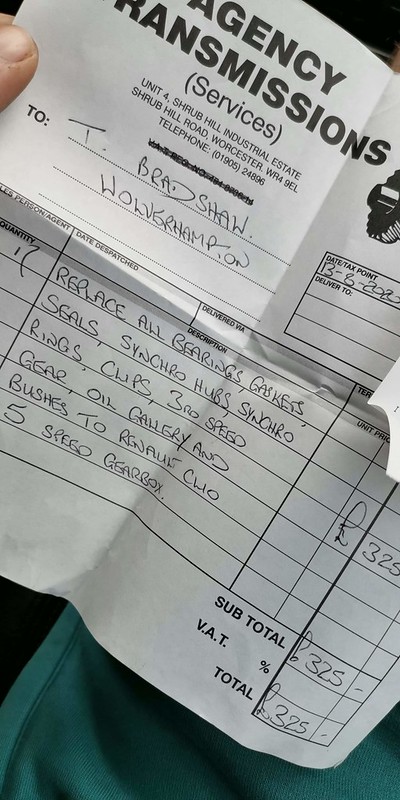 AGENCY
TRANSMISSIONS
(Services)
UNIT 4, SHRUB HILL INDUSTRIAL ESTATE
SHRUB HILL ROAD, WORCESTER. WR4 9EL
TELEPHONE: (01905) 24896
TO: T. BRADSHAW.
WOLVERHAMPTON
DATE/TAX POINT
13-8-202
DELIVER TO:
PERSON/AGENT
DATE DESPATCHED
DELIVERED VIA
QUANTITY
DESCRIPTION
UNIT PRIC
REPLACE ALL BEARINGS GASKETS,
SEALS, SYNCHRO HUBS, SYNCHRO
RINGS, CLIPS, 3RD SPEED
GEAR, OIL GALLERY AND
BUSHES TO RENAULT CLIO
5 SPEED GEARBOX.
£ 325
SUB TOTAL £325 -
V.A.T. %
TOTAL £325 -